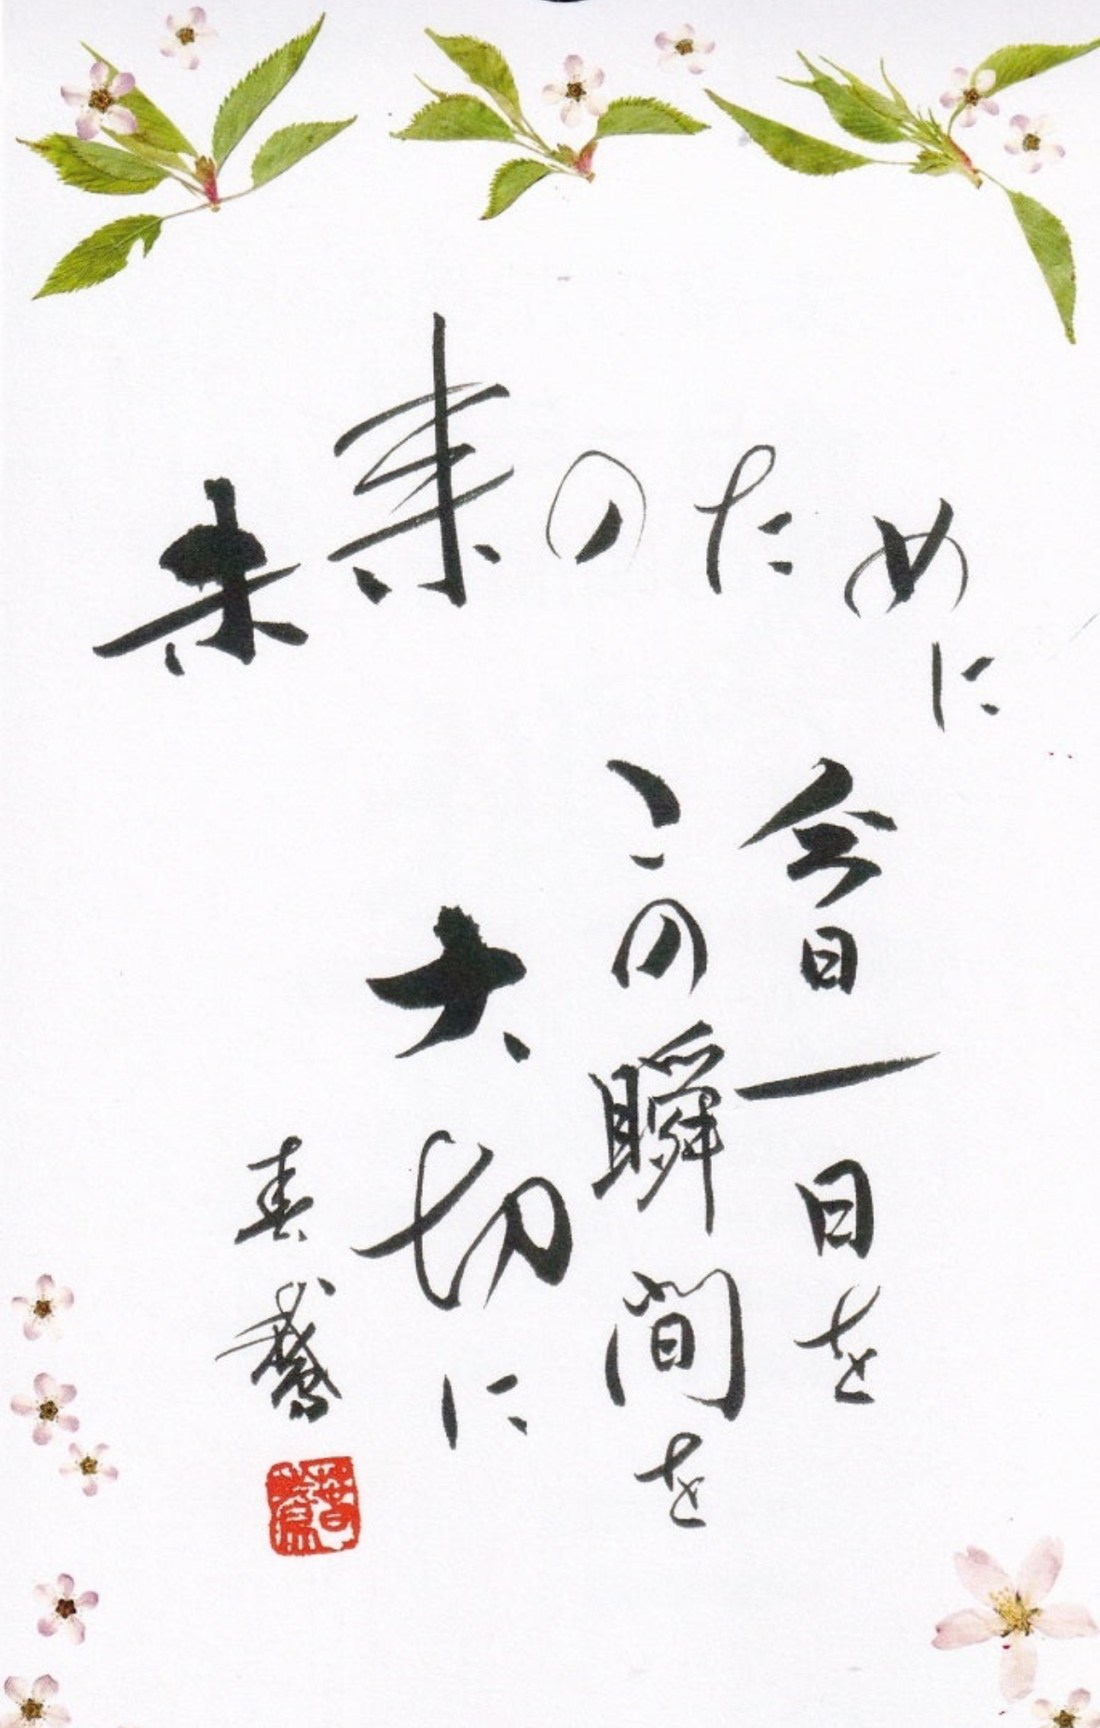 未来のために
今日一日を
この瞬間を
大切に
春鵞